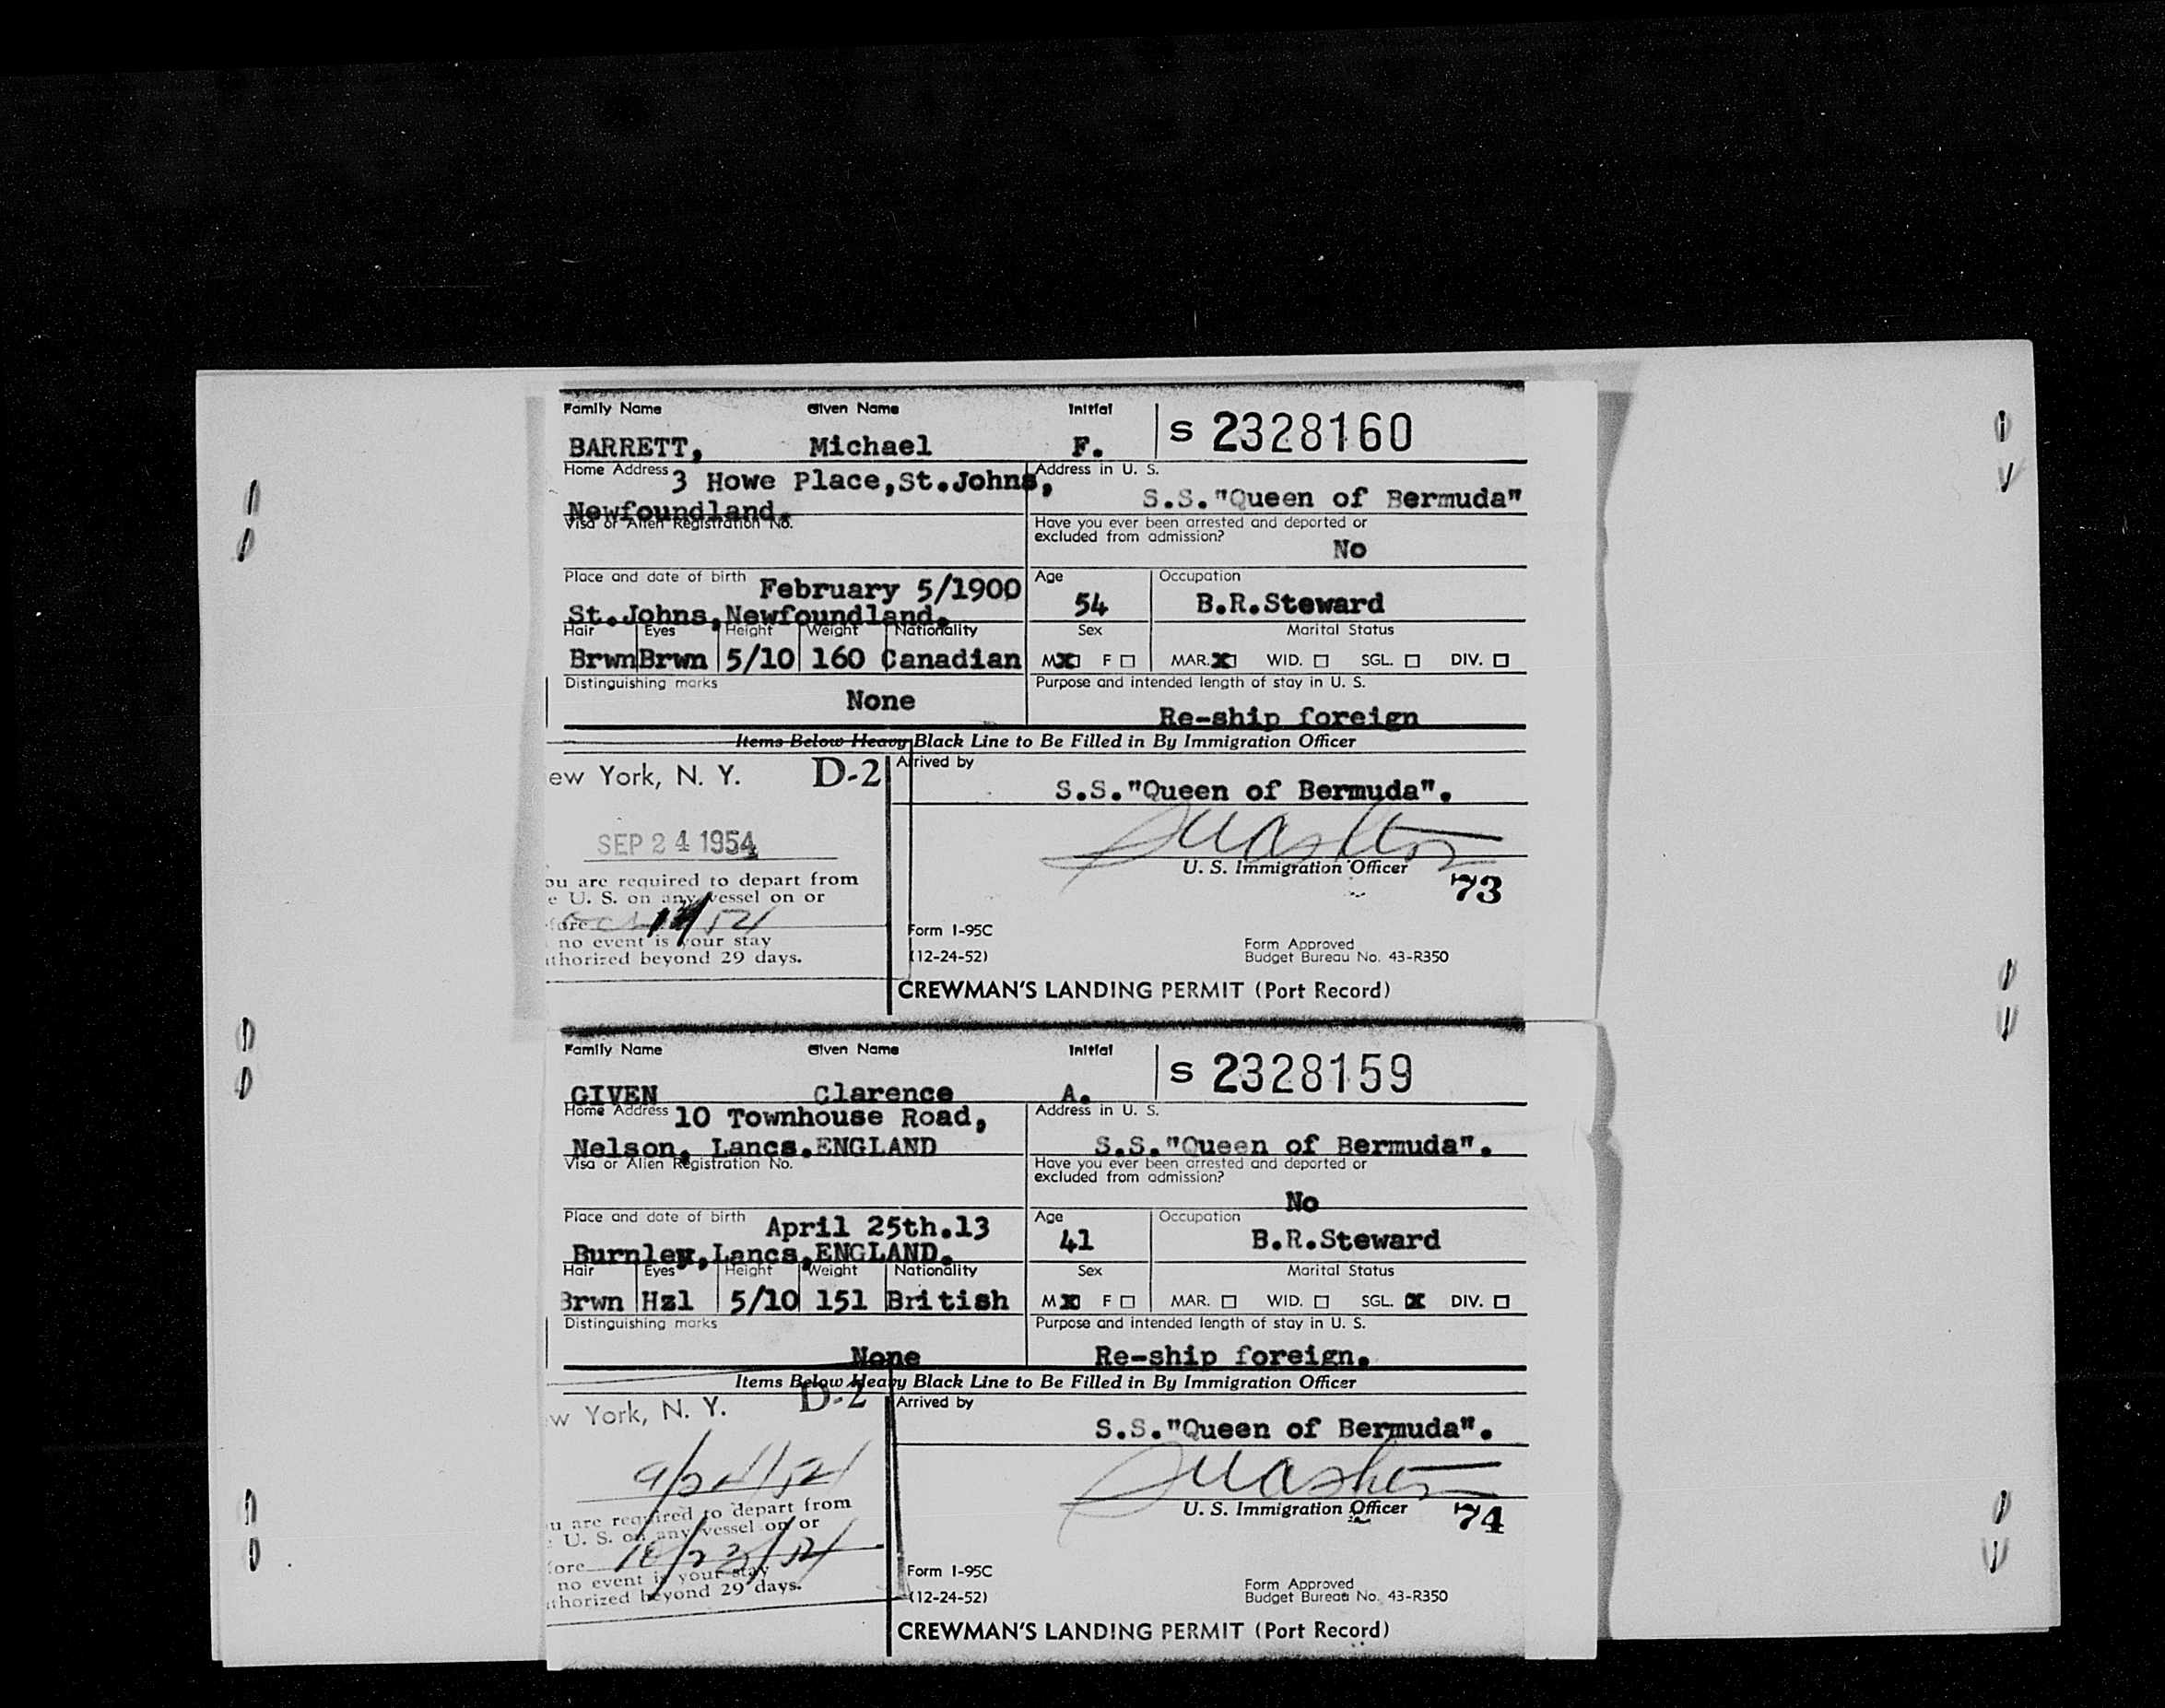 Family Name Given Name Initial S 2328160
BARRETT, Michael F.
Home Address 3 Howe Place,St.Johns, Address in U. S.
Newfoundland. S.S."Queen of Bermuda"
Visa or Alien Registration No. Have you ever been arrested and deported or
excluded from admission?
No
Place and date of birth February 5/1900 Age Occupation
St.Johns,Newfoundland. 54 B.R.Steward
Hair Eyes Height Weight Nationality Sex Marital Status
Brwn Brwn 5/10 160 Canadian M X F □ MAR. X WID. □ SGL. □ DIV. □
Distinguishing marks Purpose and intended length of stay in U. S.
None Re-ship foreign
Items Below Heavy Black Line to Be Filled in By Immigration Officer
ew York, N. Y. D-2 Arrived by
S.S."Queen of Bermuda".
SEP 24 1954
U. S. Immigration Officer
ou are required to depart from 73
e U. S. on any vessel on or
fore
no event is your stay Form I-95C Form Approved
uthorized beyond 29 days. (12-24-52) Budget Bureau No. 43-R350
CREWMAN'S LANDING PERMIT (Port Record)
Family Name Given Name Initial S 2328159
GIVEN Clarence A.
Home Address 10 Townhouse Road, Address in U. S.
Nelson, Lancs.ENGLAND S.S."Queen of Bermuda".
Visa or Alien Registration No. Have you ever been arrested and deported or
excluded from admission?
No
Place and date of birth April 25th.13 Age Occupation
Burnley,Lancs,ENGLAND. 41 B.R.Steward
Hair Eyes Height Weight Nationality Sex Marital Status
Brwn Hzl 5/10 151 British M X F □ MAR. □ WID. □ SGL. X DIV. □
Distinguishing marks Purpose and intended length of stay in U. S.
None Re-ship foreign.
Items Below Heavy Black Line to Be Filled in By Immigration Officer
w York, N. Y. D-2 Arrived by
S.S."Queen of Bermuda".
9/24/54
U. S. Immigration Officer
u are required to depart from 74
U. S. on any vessel on or
fore 10/23/54
no event is your stay Form I-95C Form Approved
uthorized beyond 29 days. (12-24-52) Budget Bureau No. 43-R350
CREWMAN'S LANDING PERMIT (Port Record)